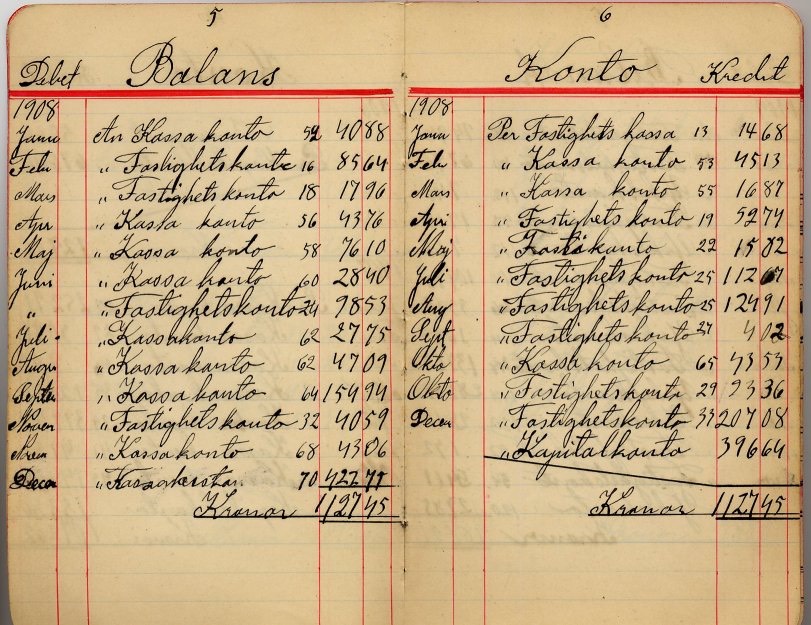 5
Debet Balans
1908
Janu An Kassa konto 52 40 88
Feb " Fastighetskonto 16 85 64
Mars " Fastighetskonto 18 17 96
Apri " Kassa konto 56 43 76
Maj " Kassa konto 58 76 10
Juni " Kassa konto 60 28 40
" " Fastighetskonto 24 98 53
Juli " Kassakonto 62 27 75
Augu " Kassa konto 62 47 09
Septe " Kassa konto 64 154 94
Noven " Fastighetskonto 32 40 59
" Kassakonto 68 43 06
Decen 70 422 77
Kronor 1127 45
6
Konto Kredit
1908
Janu Per Fastighets kassa 13 14 68
Feb " Kassa konto 53 45 13
Mars " Kassa konto 55 16 87
Apri " Fastighets konto 19 52 74
Maj 22 15 82
Juli " Fastighetskonto 25 112 67
Aug " Fastighetskonto 25 124 91
Sept " Fastighetskonto 27 4 02
Okto " Kassa konto 65 43 53
Okto " Fastighetskonto 29 93 36
Decen " Fastighetskonto 33 207 08
" Kapitalkonto 396 64
Kronor 1127 45